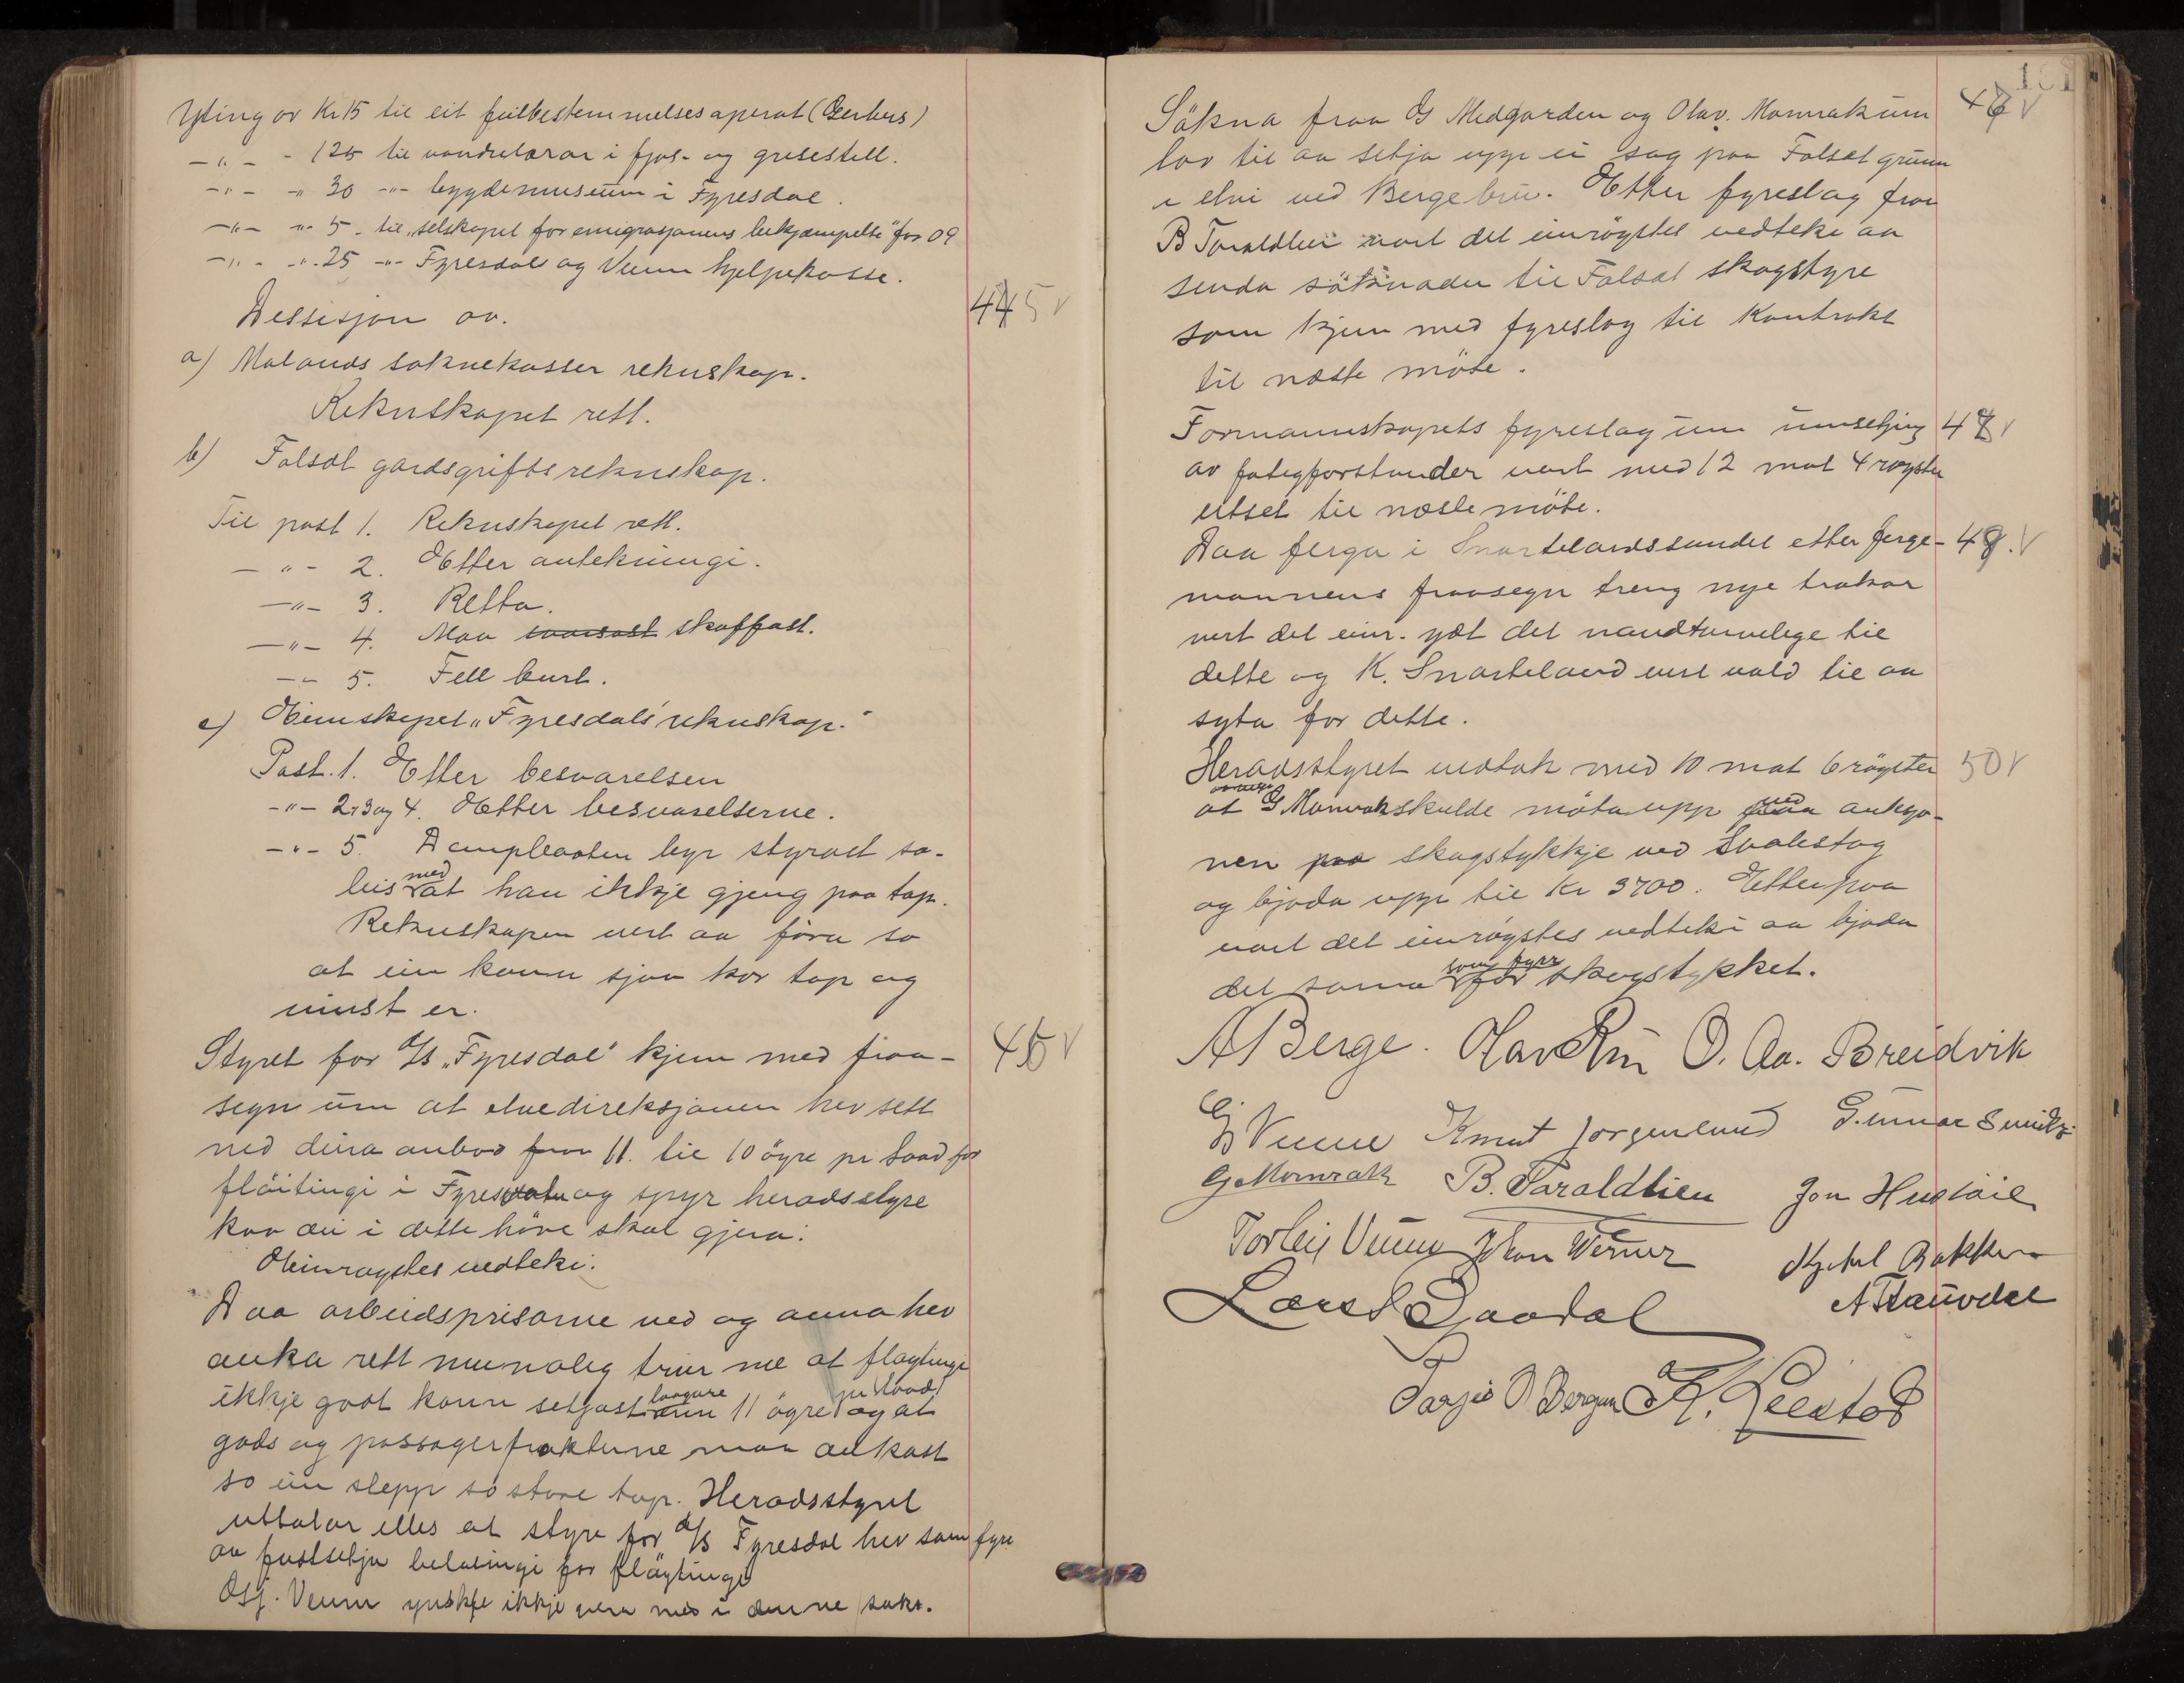 Yting av Kr 15 til eit feitbestemmelsesaperat (Gerbers)
-"- - 125 til vandrelærar i fjos- og grisestell.
-"- -" 30 -"- bygdemuseum i Fyresdal.
-"- -"- 5 - til "selskapet for emigrasjonens bekjæmpelse" for 09
-"- -"- 25 -"- Fyresdals og Veum hjelpekasse.
Dessisjon av. 445 v
a) Molands soknekasser rekneskap.
Rekneskapet rett.
b) Folsæt gardsgrifts rekneskap.
Til post 1. Rekneskapet rett.
-"- 2. Etter antekningi.
-"- 3. Retta.
-"- 4. Maa svarast skaffast.
-"- 5. Fell burt.
c) Eimskipet "Fyresdals" rekneskap.
Post. 1. Etter besvarelsen
-"- 2, 3 og 4. Etter besvarelserne.
-"- 5. Dampbaaten byr styrast so-
leis med at han ikkje gjeng paa tap.
Rekneskapen vert aa føra so
at ein kann sjaa kor tap og
vinst er.
Styret for A/S "Fyresdal" kjem med fraa- 46 v
segn um at elvedireksjonen hev sett
ned deira anbod fraa 11 til 10 øyre pr. baand for
fløitingi i Fyresvatn og spyr heradsstyre
kva dei i dette høve skal gjera.
Einrøystes vedteki:
Daa arbeidsprisarne ved og anna hev
auka rett munaleg trur me at fløytingi
ikkje godt kann setjast laagare enn 11 øyre pr baand og at
gods og passagerfrakterne maa aukast
so ein slepp so store tap. Heradsstyret
uttalar elles at styre for A/S Fyresdal hev som fyre
aa fastsetja betalingi for fløytingi
Osf. Veum ynskje ikkje vera med i denne sak.
101
Søkna fraa G Medgarden og Olav. Momrak um 47 v
lov til aa setja upp ei sag paa Folsæt grunn
i elvi ved Bergebru. Etter fyreslag fraa
B Taraldlien vart det einrøystes vedteke aa
senda søknaden til Folsæt skogstyre
som kjem med fyreslag til Kontrakt
til næste møte.
Formannskapets fyreslag um umsetjing 48 v
av fatigforstander vart med 12 mot 4 røyster
utset til næste møte.
Daa ferga i Snartelandssundet etter ferge- 49. v
mannens fraasegn treng nye trakar
vert det einr. ydt det naudturvelege til
dette og K. Snarteland vert vald til aa
syta for dette.
Heradsstyret vedtok med 10 mot 6 røyster 50 v
at G Momrak skulde møta upp ved auksjo-
nen paa skogstykkje ved Svalestog
og bjoda upp til Kr 3700. Etterpaa
vart det einrøystes vedteki aa bjoda
det same som fyrr for skogstykket.
A Berge. Olav Rui O. Aa. Breidvik
Gj Veum Knut Jørgenlund Gunnar Smidz.
G Momrak B. Taraldlien Jon Husloie
Torleiv Veum Johan Werner Kjetil Bakken
Lars S Gaadal A Flauvdal
Tarjei O Bergan K. Leestod